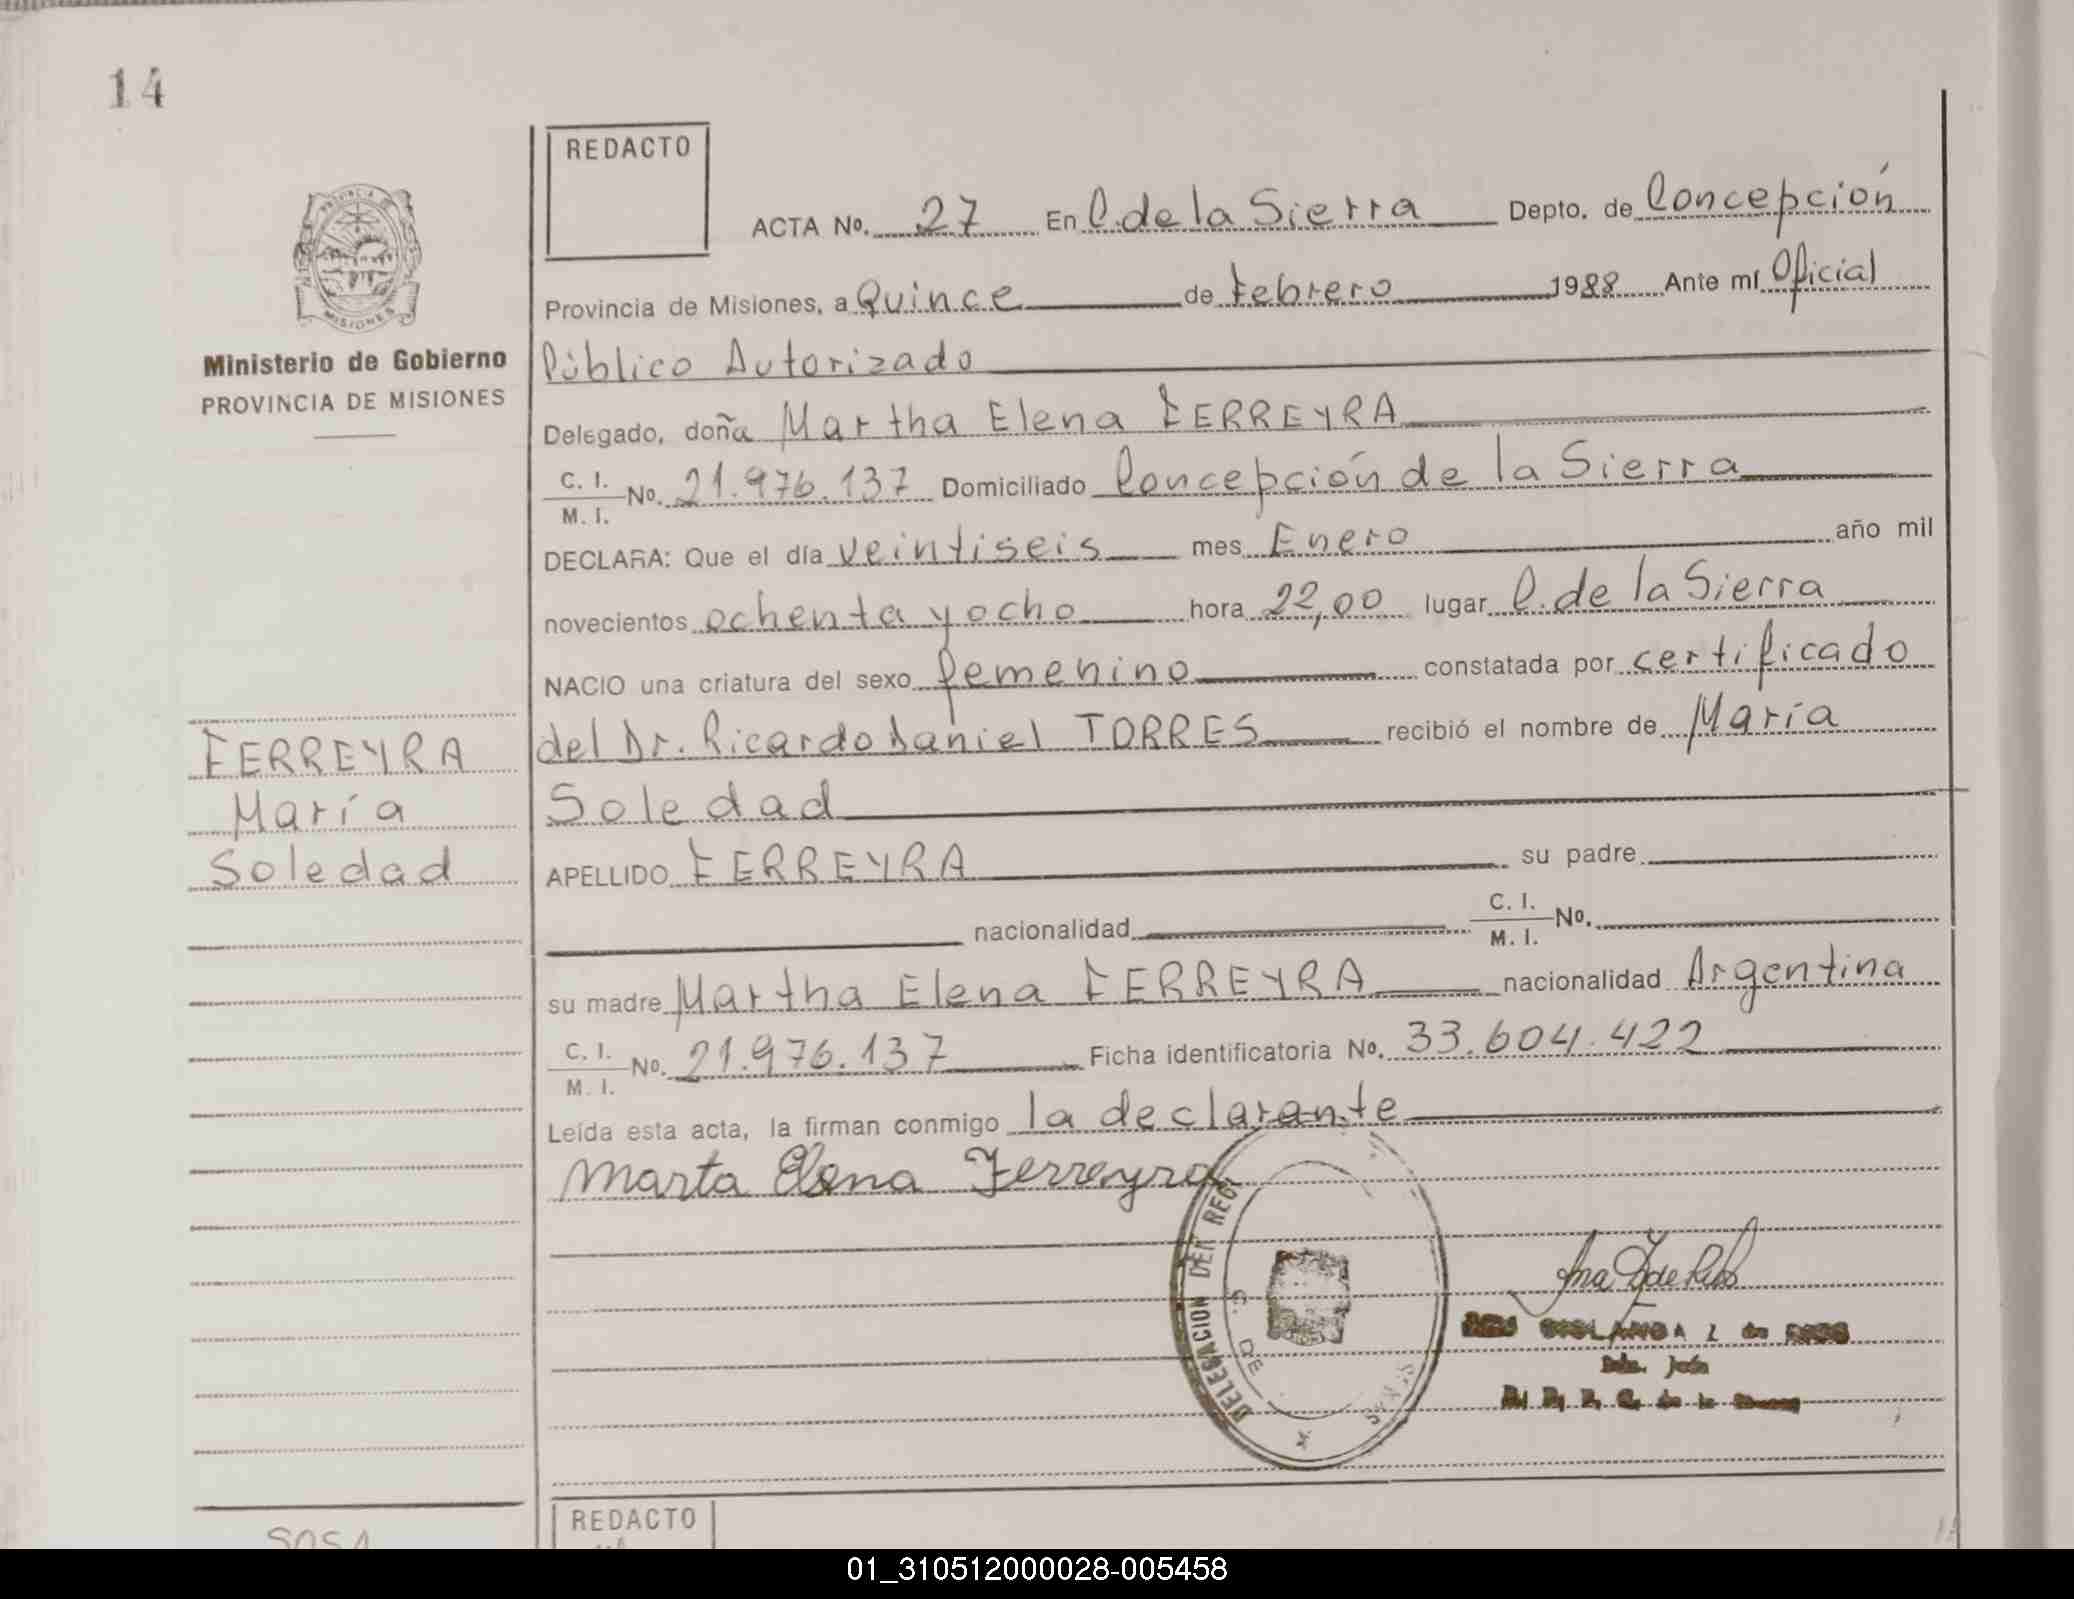 14
REDACTO
ACTA No. 27 En C. de la Sierra Depto. de Concepción
Provincia de Misiones, a Quince de Febrero 1988 Ante mí Oficial
Público Autorizado
Ministerio de Gobierno
PROVINCIA DE MISIONES
Delegado, doña Martha Elena FERREYRA
C. I.
M. I. No. 21.976.137 Domiciliado Concepción de la Sierra
DECLARA: Que el día veintiseis mes Enero año mil
novecientos ochenta y ocho hora 22,00 lugar C. de la Sierra
NACIO una criatura del sexo femenino constatada por certificado
del Dr. Ricardo Daniel TORRES recibió el nombre de María
Soledad
FERREYRA
María
Soledad
APELLIDO FERREYRA su padre
nacionalidad C. I.
M. I. No.
su madre Martha Elena FERREYRA nacionalidad Argentina
C. I.
M. I. No. 21.976.137 Ficha identificatoria No. 33.604.422
Leída esta acta, la firman conmigo la declarante
Marta Elena Ferreyra
DELEGACION DEL REG.
DE
REDACTO
SOSA
01_310512000028-005458